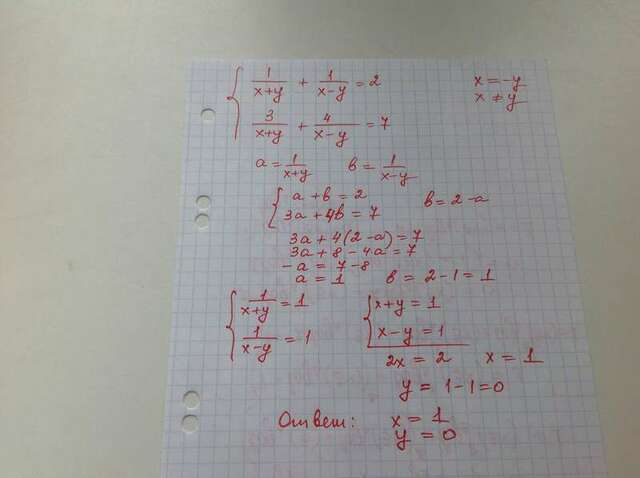 1/(x+y) + 1/(x-y) = 2
x = -y
x ≠ y
3/(x+y) + 4/(x-y) = 7
a = 1/(x+y) в = 1/(x-y)
a + в = 2
в = 2-a
3a + 4в = 7
3a + 4(2-a) = 7
3a + 8 - 4a = 7
-a = 7-8
a = 1 в = 2-1 = 1
1/(x+y) = 1
x+y = 1
1/(x-y) = 1
x-y = 1
2x = 2 x = 1
y = 1-1=0
Ответ: x = 1
y = 0